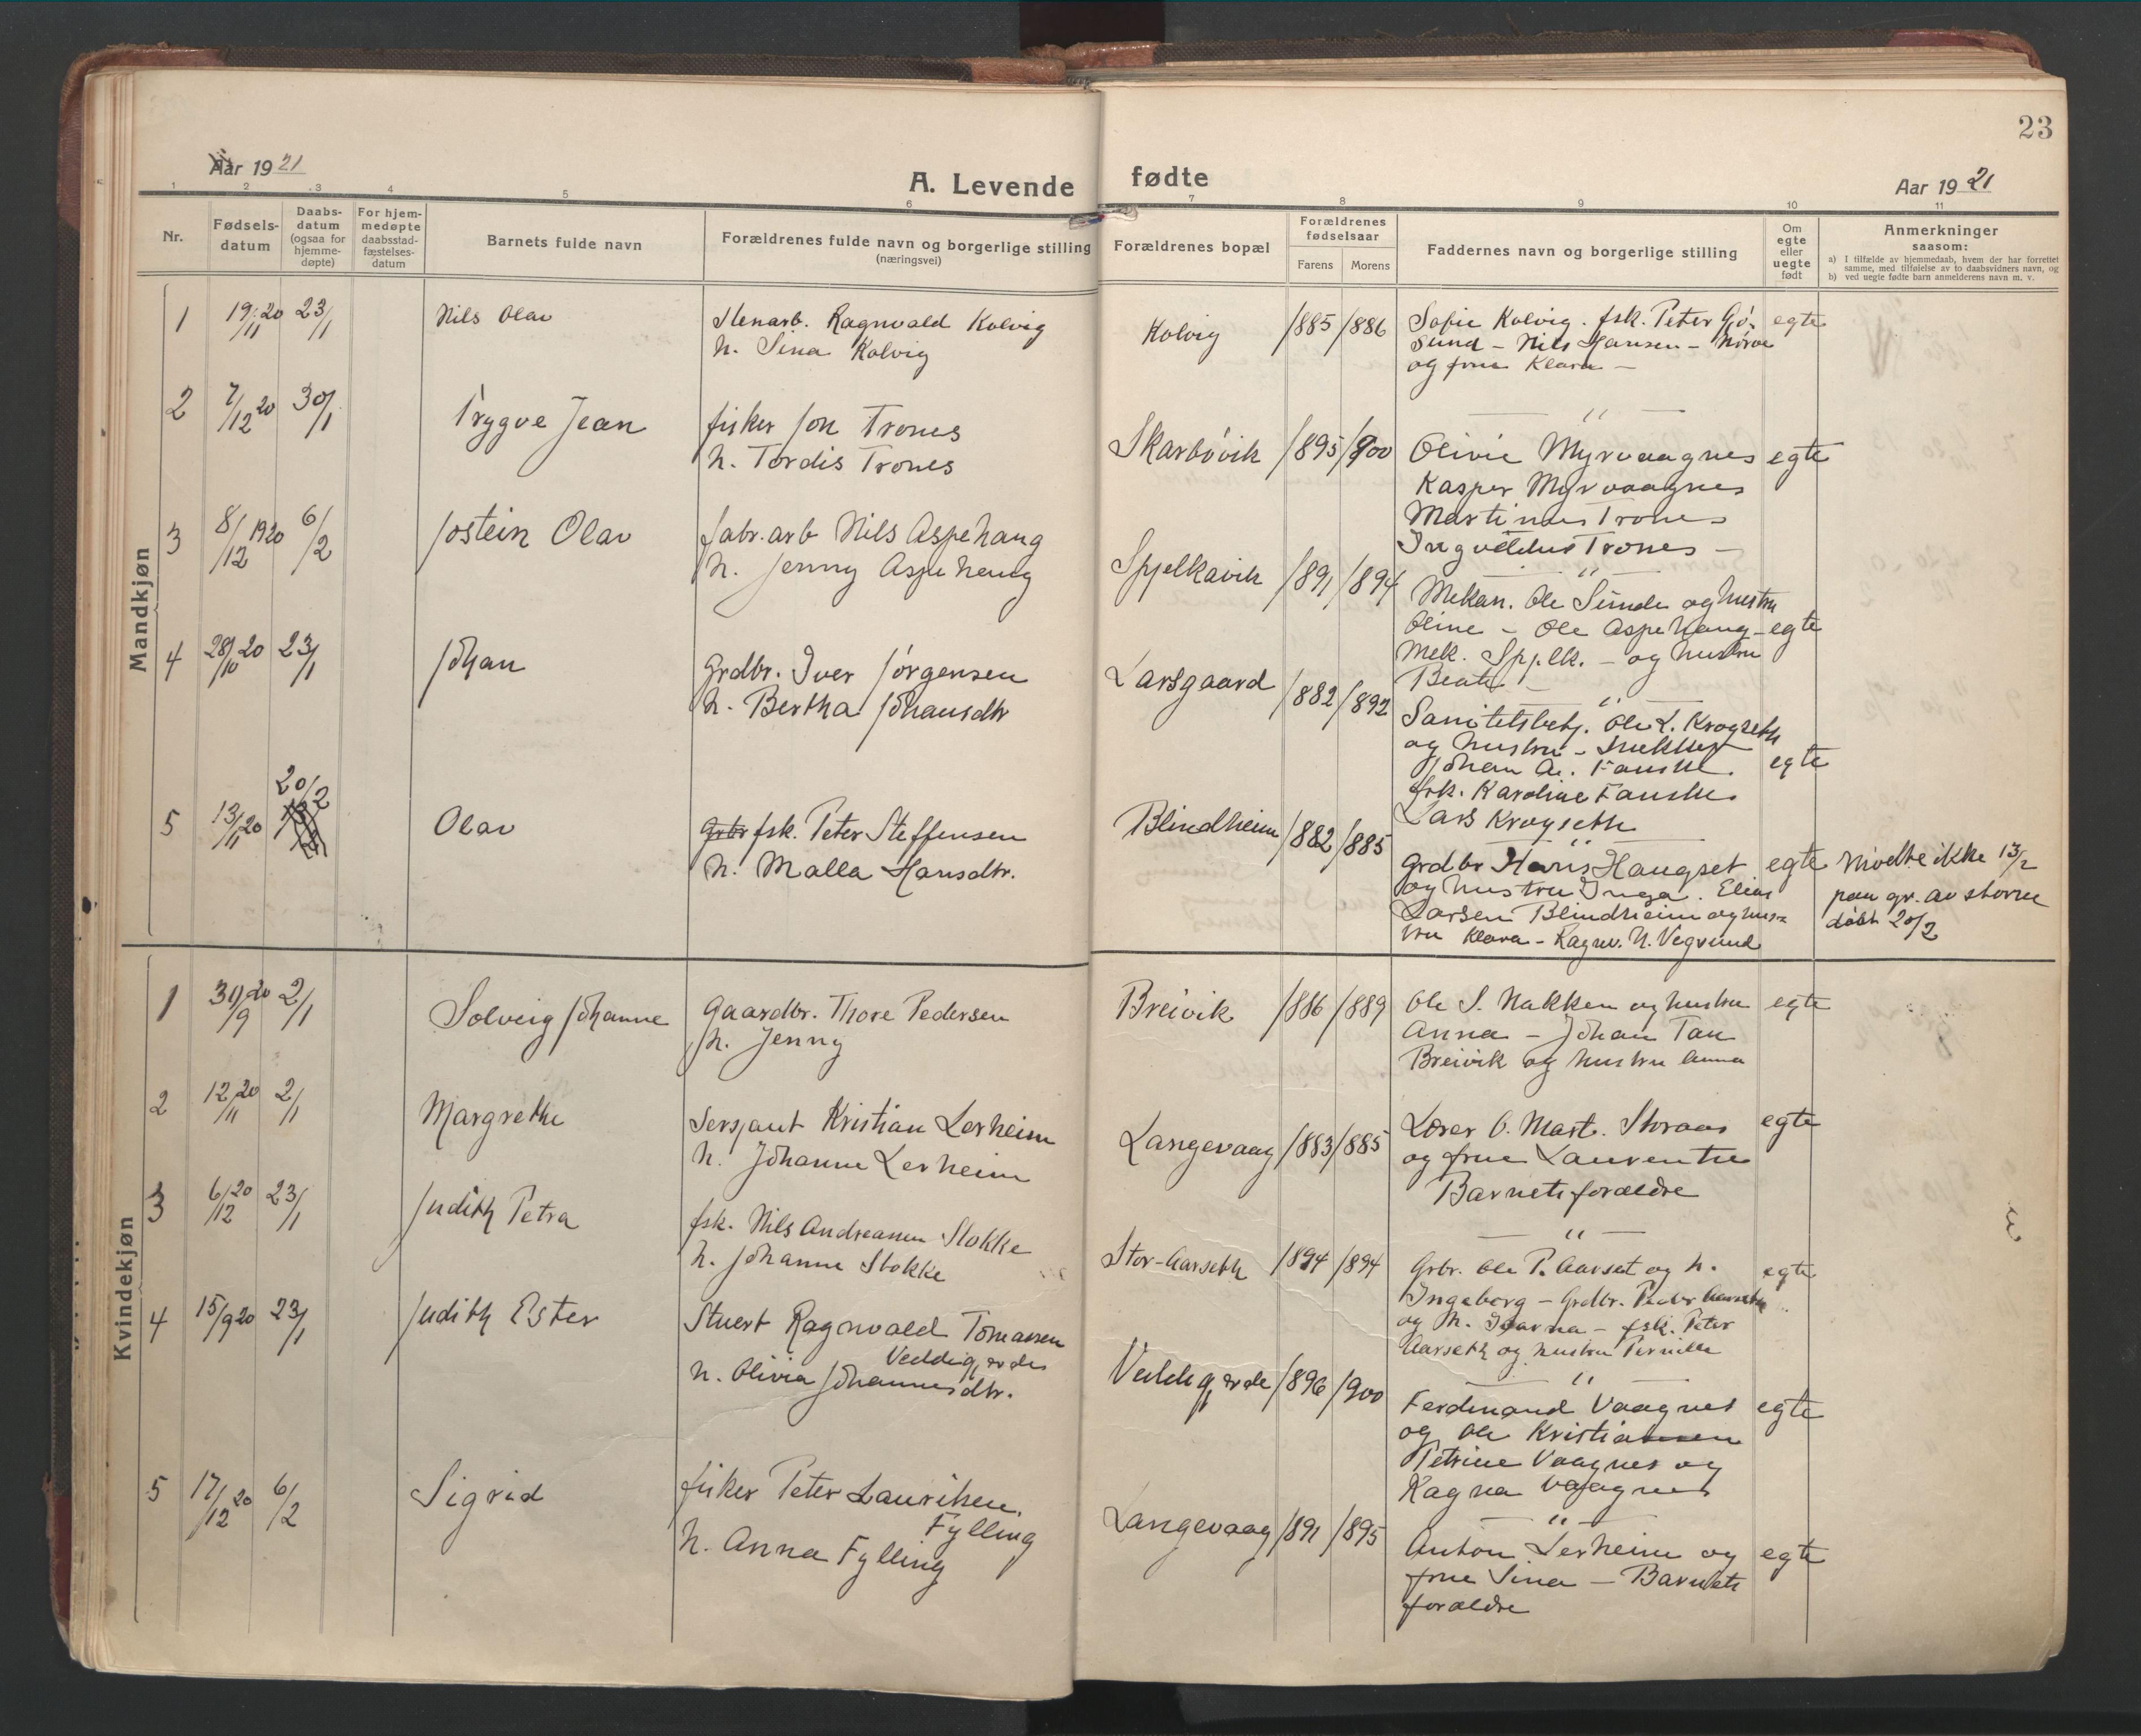 23
Aar 1921
A. Levende fødte
Aar 1921
1 2 3 4 5 6 7 8 9 10 11
Nr.
Fødsels-
datum
Daabs-
datum
(ogsaa for
hjemme-
døpte)
For hjem-
medøpte
daabsstad-
fæstelses-
datum
Barnets fulde navn
Forældrenes fulde navn og borgerlige stilling
(næringsvei)
Forældrenes bopæl
Forældrenes
fødselsaar
Farens Morens
Faddernes navn og borgerlige stilling
Om
egte
eller
uegte
født
Anmerkninger
saasom:
a) I tilfælde av hjemmedaab, hvem der har forrettet
samme, med tilføielse av to daabsvidners navn, og
b) ved uegte fødte barn anmelderens navn m. v.
Mandkjøn
1 19/11 20 23/1 Nils Olav
Stenarb. Ragnvald Kolvig
h. Sina Kolvig
Kolvig 1885 1886
Sofie Kolvig. fsk. Peter Gjø-
sund - Nils Hansen - Nørve
og frue Klara -
egte
2 7/12 20 30/1 Trygve Jean
fisker Jon Trones
h. Tordis Trones
Skarbøvik 1895 1900
Olivie Myrvaagnes
Kasper Myrvaagnes
Martinus Trones
Trones -
egte
3 8/12 1920 6/2 Jostein Olav
fabr.arb Nils Aspehaug
h. Jenny Aspehaug
Spjelkavik 1891 1894
Mekan. Ole Sunde og hustru
Oline - Ole Aspehaug -
Mek. Spjelk. - og hustru
Beate -
egte
4 28/10 20 23/1 Johan
Grdbr. Iver Jørgensen
h. Bertha Johansdtr
Larsgaard 1882 1892
Sanitetsbetj. Ole L. Krogseth
og hustru -
Johan A. Fauske.
frk. Karoline Fauske
Lars Krogseth
egte
5 13/11 20 20/2 Olav
Grbr fsk. Peter Steffensen
h. Malla Hansdtr.
Blindheim 1882 1885
Grdbr Hans Haugset
og hustru Inga. Elias
Larsen Blindheim og hus-
tru Klara - Ragnv. N. Vegsund
egte
Møtte ikke 13/2
paa gr. av storm
døbt 20/2
Kvindekjøn
1 30/9 20 2/1 Solveig Johanne
Gaardbr. Thore Pedersen
h. Jenny
Breivik 1886 1889
Ole S. Nakken og hustru
Anna - Johan Tan
Breivik og hustru Anna
egte
2 12/11 20 2/1 Margrethe
Sersjant Kristian Lerheim
h. Johanne Lerheim
Langevaag 1883 1885
Lærer O. Mart. Storaas
og frue Laurentse
Barnets forældre
egte
3 6/12 20 23/1 Judith Petra
fsk. Nils Andreassen Stokke
h. Johanne Stokke
Stor-Aarseth 1894 1894
Grbr. Ole P. Aarset og h.
Ingeborg - Grdbr. Peder Aarseth
og h. - fsk. Peter
Aarseth og hustru Pernille
egte
4 15/9 20 23/1 Judith Ester
Stuert Ragnvald Tomassen
Veddegjerde
h. Olivia Johannesdtr.
Veddegjerde 1896 1900
Ferdinand Vaagnes
og Ole Kristiansen
Petrine Vaagnes og
Ragna Vaagnes
egte
5 17/12 20 6/2 Sigrid
fisker Peter Lauritsen
Fylling
h. Anna Fylling
Langevaag 1891 1895
Anton Lerheim og
frue Sina - Barnets
forældre
egte